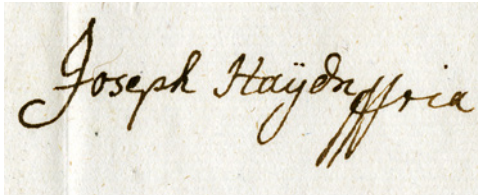 Joseph Haÿdn mpria